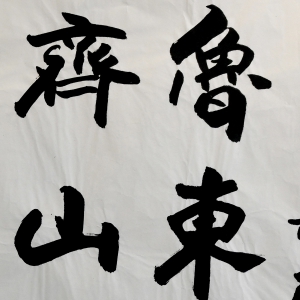 魯東
齊山